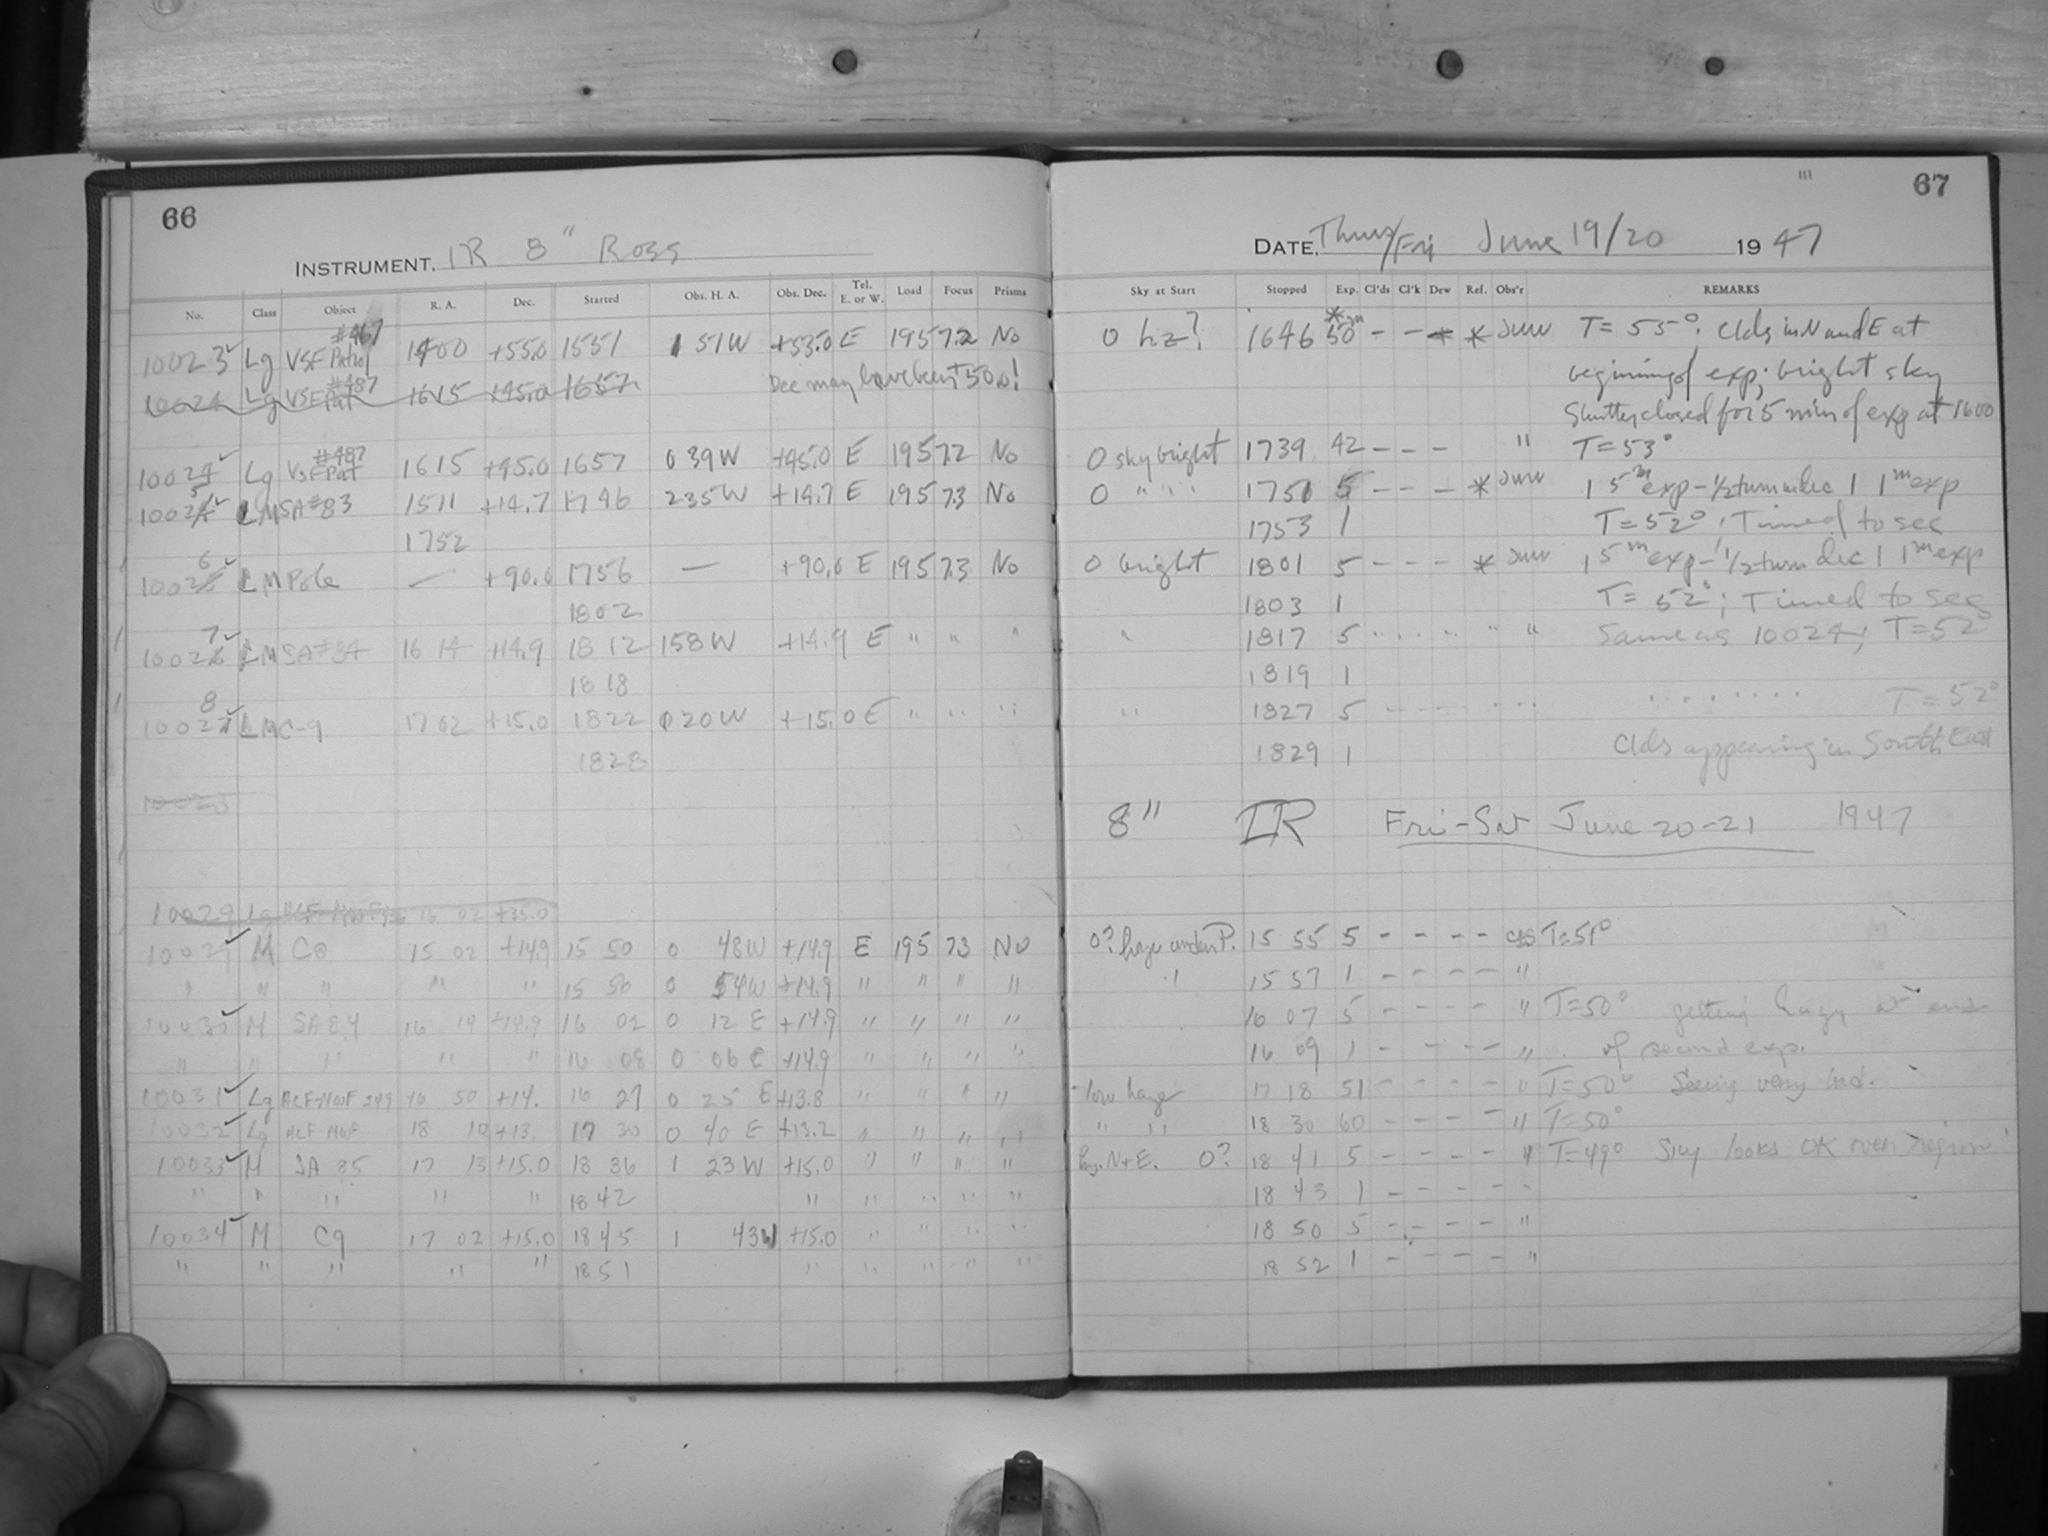 66
INSTRUMENT. IR 8" Ross
No. Class Object R. A. Dec. Started Obs. H. A. Obs. Dec. Tel. E. or W. Load Focus Prisms
#467
10023 Lg VSF Patrol 1400 +55.0 1551 1 51W +53.0 E 195 7.2 No
#487
10024 Lg VSF Pat 1615 +45.0 1657 Dec may have been +50.0!
#487
10024 Lg VSF Pat 1615 +45.0 1657 0 39W +45.0 E 195 7.2 No
10025 LM SA #83 1511 +14.7 1746 2 35W +14.7 E 195 7.3 No
1752
10026 LM Pole — +90.0 1756 — +90.0 E 195 7.3 No
1802
10027 LM SA #84 16 14 +14.9 18 12 1 58W +14.9 E " " "
18 18
10028 LM C-9 17 02 +15.0 1822 0 20W +15.0 E " " "
1828
10029 Lg 16 02 +35.0
10029 M C8 15 02 +14.9 15 50 0 48W +14.9 E 195 7.3 No
" " " " " 15 56 0 54W +14.9 " " " "
10030 M SA 84 16 14 +14.9 16 02 0 12 E +14.9 " " " "
" " " " " 16 08 0 06 E +14.9 " " " "
10031 Lg 16 50 +14. 16 27 0 25 E +13.8 " " " "
10032 Lg 18 10 +13. 17 30 0 40 E +13.2 " " " "
10033 M SA 85 17 13 +15.0 18 36 1 23W +15.0 " " " "
" " " " " 1842 " " " " "
10034 M C9 17 02 +15.0 1845 1 43W +15.0 " " " "
" " " " " 1851 " " " " "
67
DATE, Thurs/Fri June 19/20 1947
Sky at Start Stopped Exp. Cl'ds Cl'k Dew Ref. Obs'r REMARKS
0 hz? 1646 50 - - * * T = 55°; Clds in N and E at
beginning of exp; bright sky
Shutter closed for 5 min of exp at 1600
0 sky bright 1739 42 - - - " T = 53°
0 " " 1751 5 - - - * 1 5m exp - 1/2 turn in dec 1 1m exp
1753 1 T = 52°; Timed to sec
0 bright 1801 5 - - - * 1 5m exp - 1/2 turn dec 1 1m exp
1803 1 T = 52°; Timed to sec
" 1817 5 " " " " " Same as 10024; T = 52°
1819 1
" 1827 5 " " " " T = 52°
1829 1 Clds appearing in South East
8" IR Fri-Sat June 20-21 1947
0? haze under P. 15 55 5 - - - - T=51°
" 15 57 1 - - - - "
16 07 5 - - - - " T=50° getting hazy at end
16 09 1 - - - - " of second exp.
low haze 17 18 51 - - - - " T=50° Seeing very bad.
" " 18 30 60 - - - - " T=50°
N+E. 0? 18 41 5 - - - - " T=49° Sky looks OK over region
18 43 1 - - - - "
18 50 5 - - - - "
18 52 1 - - - - "